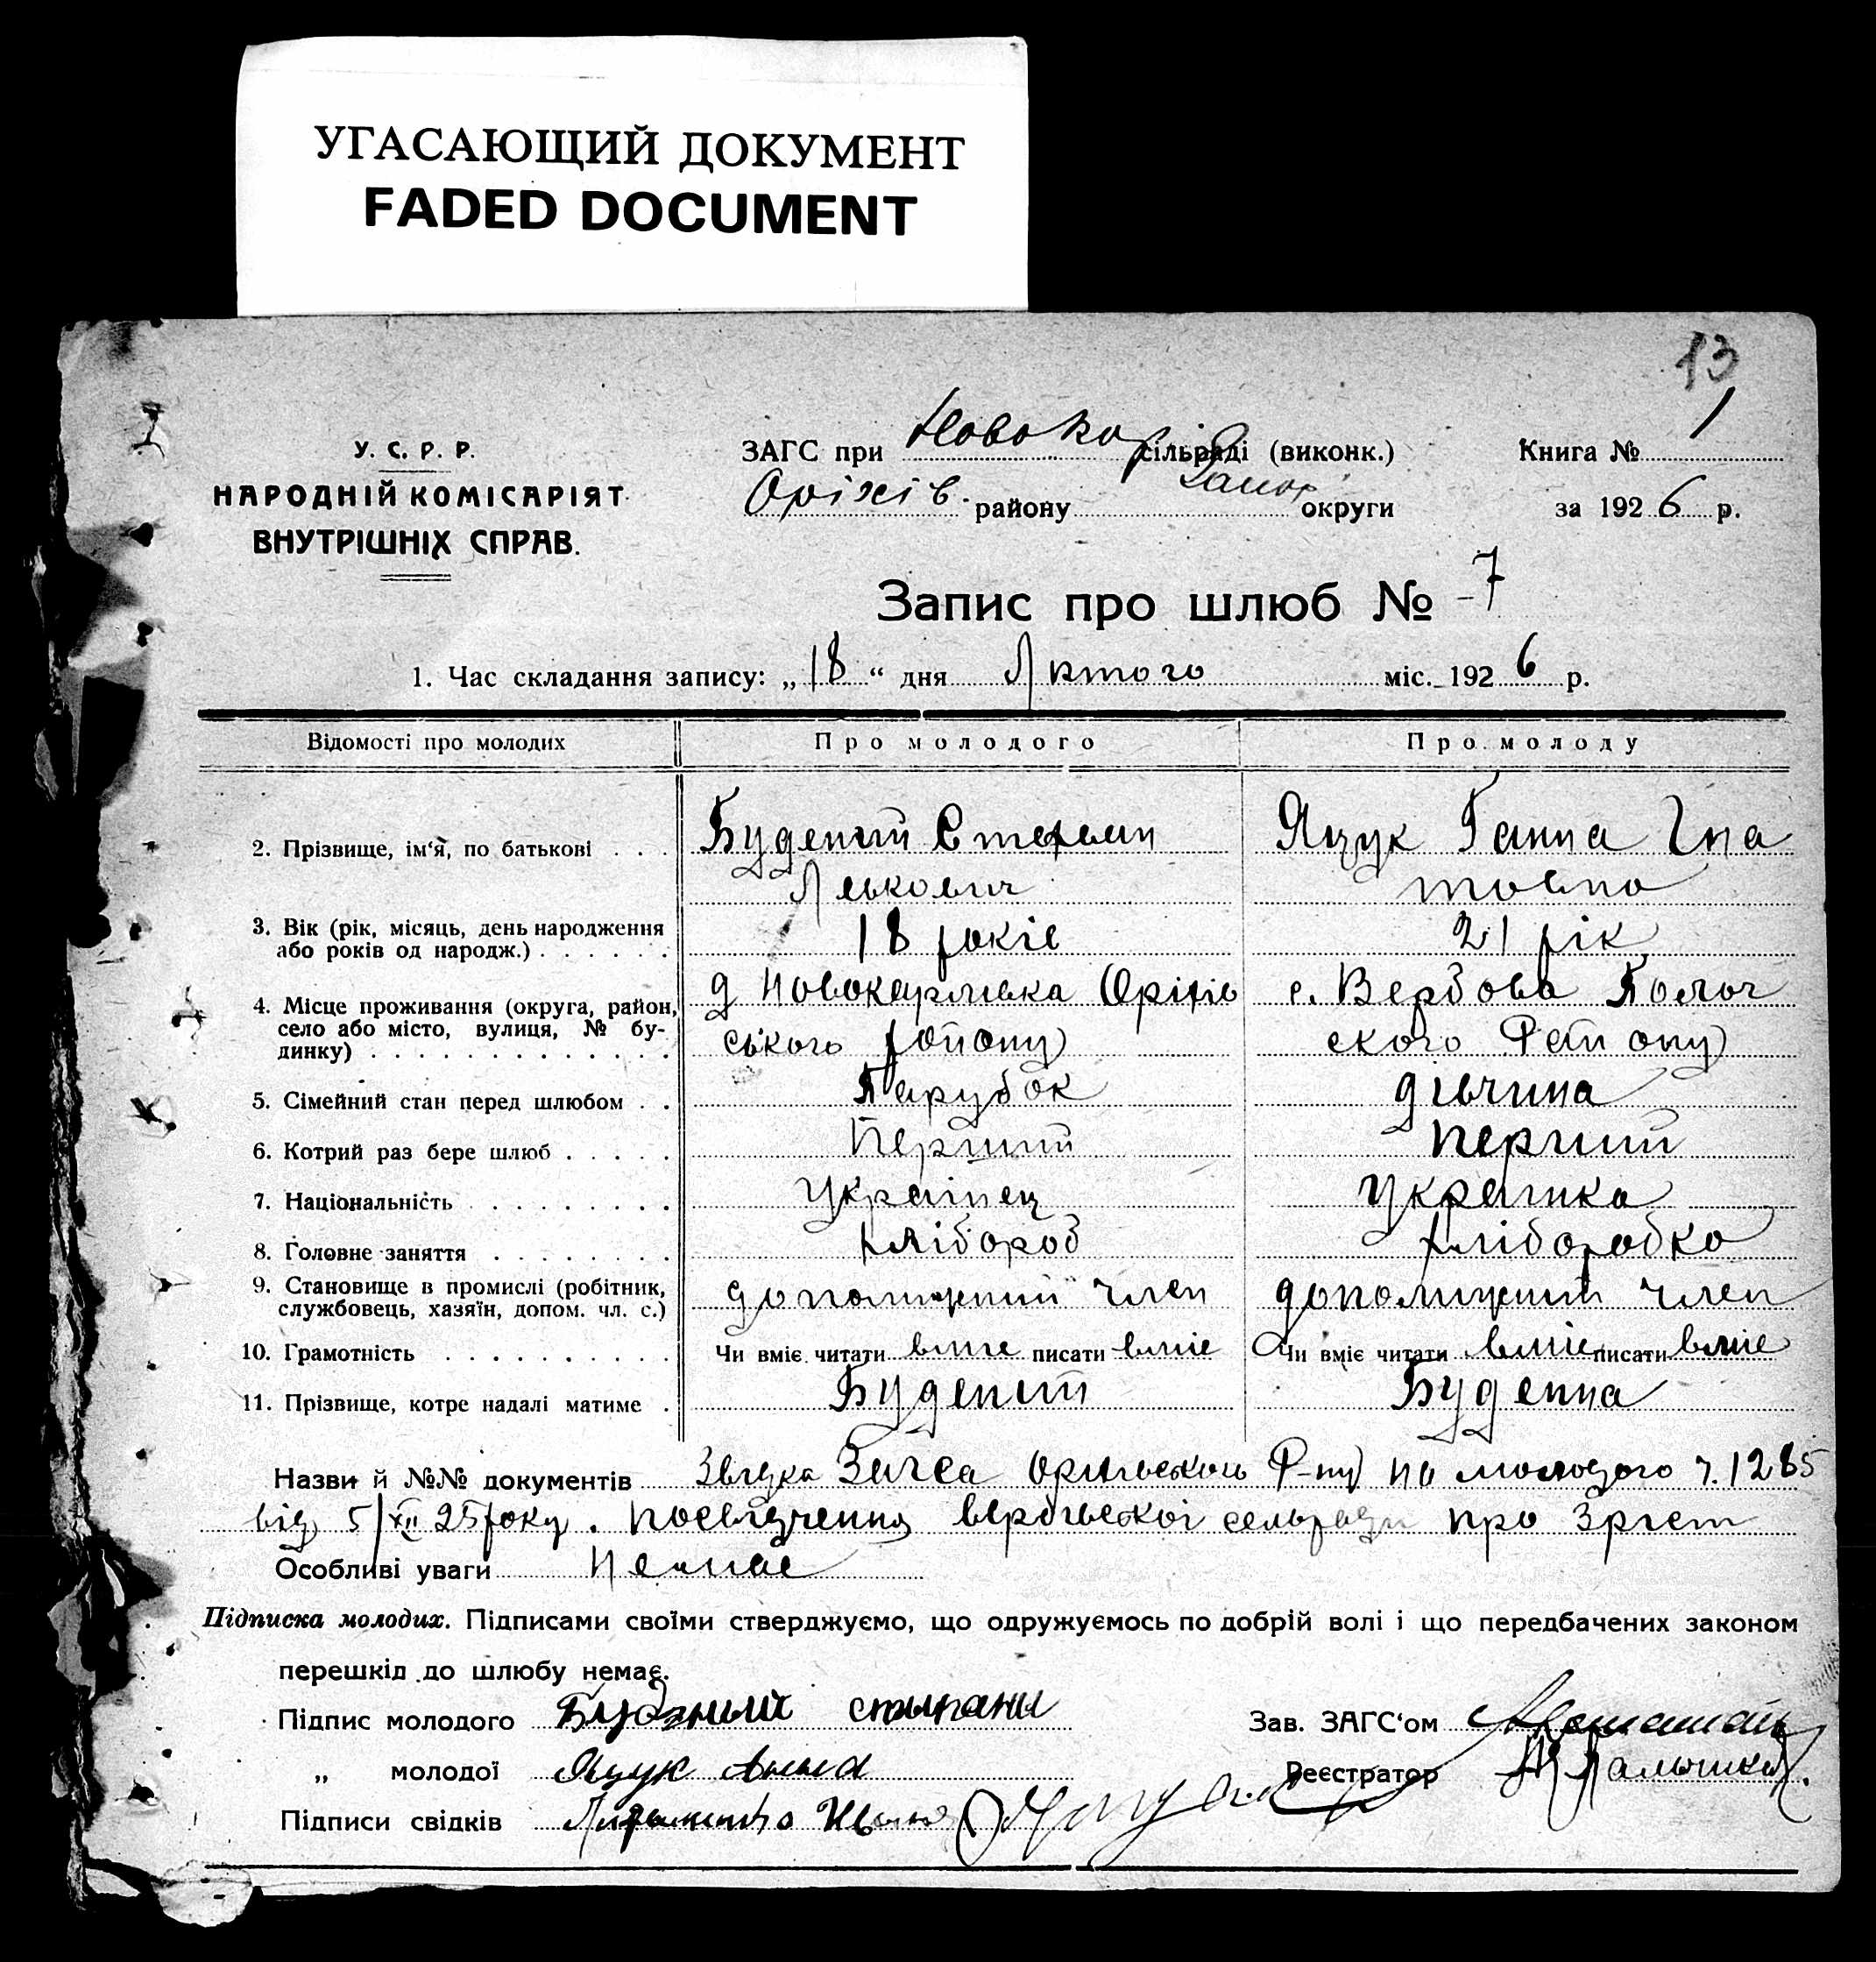 УГАСАЮЩИЙ ДОКУМЕНТ
FADED DOCUMENT
13
У. С. Р. Р.
НАРОДНІЙ КОМІСАРІЯТ
ВНУТРІШНІХ СПРАВ.
ЗАГС при Новокар сільраді (виконк.)
Оріхів. району Запор округи
Книга № 1
за 1926 р.
Запис про шлюб № 7
1. Час складання запису: „18“ дня Лютого міс. 1926 р.
Відомості про молодих Про молодого Про молоду
2. Прізвище, ім‘я, по батькові . . . Будений Стефан Яцук Ганна Гна
Лькович товна
3. Вік (рік, місяць, день народження 18 років 21 рік
або років од народж.) . . . . . .
4. Місце проживання (округа, район, д Новокарлівка Оріхів с. Вербова Полог
село або місто, вулиця, № бу- ського району ского Району
динку) . . . . . . . . . . . . .
5. Сімейний стан перед шлюбом . . Парубок дівчина
6. Котрий раз бере шлюб . . . . . Перший перший
7. Національність . . . . . . . . . Українец Українка
8. Головне заняття . . . . . . . . хлібороб хліборобка
9. Становище в промислі (робітник, допоміжний член допоміжний член
службовець, хазяїн, допом. чл. с.)
10. Грамотність . . . . . . . . . . Чи вміє читати вміє писати вміє Чи вміє читати вміє писати вміє
11. Прізвище, котре надалі матиме . Будений Буденна
Назви й №№ документів Звідка Загса Оріхівського Р-ну на молодого ч. 1285
від 5/XII 25 року. посвідчення вербівської сельради про Зріст
Особливі уваги Немає
Підписка молодих. Підписами своїми стверджуємо, що одружуємось по добрій волі і що передбачених законом
перешкід до шлюбу немає.
Підпис молодого Будэный
Зав. ЗАГС‘ом
„ молодої Яцук Анна
Реєстратор
Підписи свідків